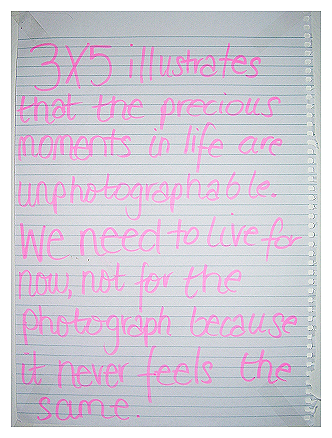 3x5 illustrates
that the precious
moments in life are
unphotographable.
We need to live for
now, not for the
photograph because
it never feels the
same.